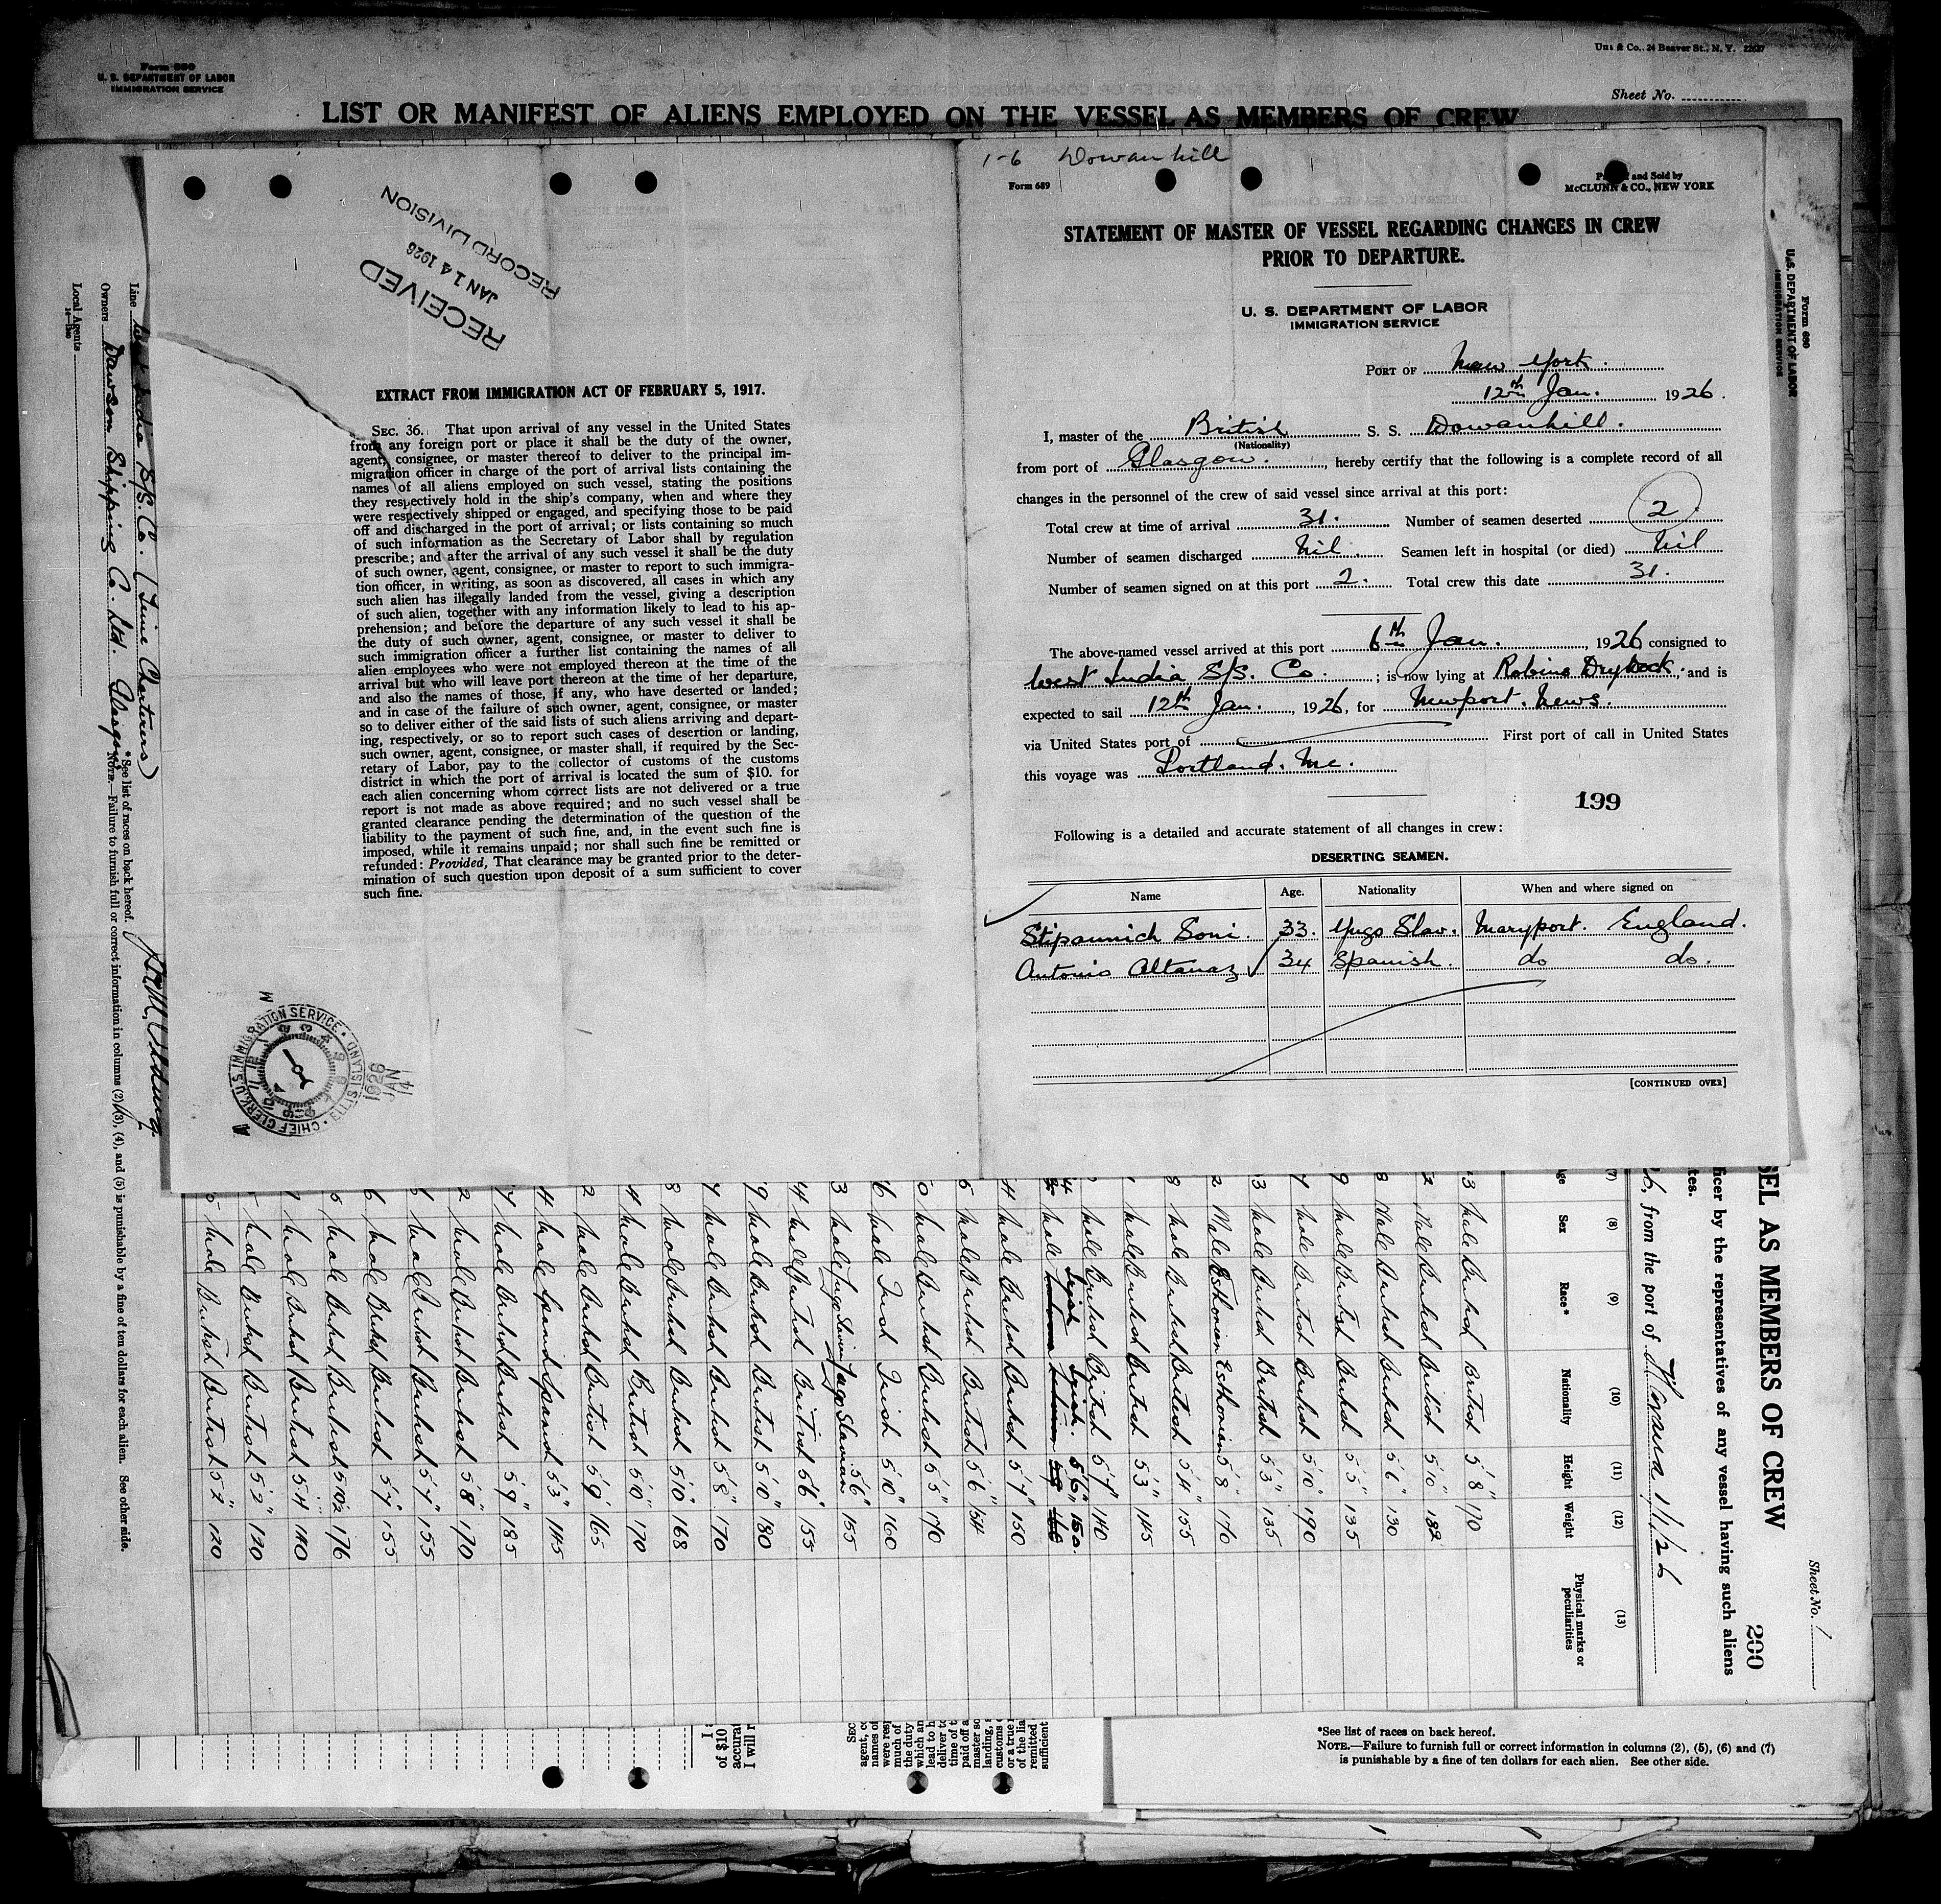 Form 680
U. S. DEPARTMENT OF LABOR
IMMIGRATION SERVICE
& Co., 24 Beaver St., N. Y.
Sheet No.
LIST OR MANIFEST OF ALIENS EMPLOYED ON THE VESSEL AS MEMBERS OF CREW
RECEIVED
JAN 14 1926
RECORD DIVISION
EXTRACT FROM IMMIGRATION ACT OF FEBRUARY 5, 1917.
SEC. 36. That upon arrival of any vessel in the United States
from any foreign port or place it shall be the duty of the owner,
agent, consignee, or master thereof to deliver to the principal im-
migration officer in charge of the port of arrival lists containing the
names of all aliens employed on such vessel, stating the positions
they respectively hold in the ship's company, when and where they
were respectively shipped or engaged, and specifying those to be paid
off and discharged in the port of arrival; or lists containing so much
of such information as the Secretary of Labor shall by regulation
prescribe; and after the arrival of any such vessel it shall be the duty
of such owner, agent, consignee, or master to report to such immigra-
tion officer, in writing, as soon as discovered, all cases in which any
such alien has illegally landed from the vessel, giving a description
of such alien, together with any information likely to lead to his ap-
prehension; and before the departure of any such vessel it shall be
the duty of such owner, agent, consignee, or master to deliver to
such immigration officer a further list containing the names of all
alien employees who were not employed thereon at the time of the
arrival but who will leave port thereon at the time of her departure,
and also the names of those, if any, who have deserted or landed;
and in case of the failure of such owner, agent, consignee, or master
so to deliver either of the said lists of such aliens arriving and depart-
ing, respectively, or so to report such cases of desertion or landing,
such owner, agent, consignee, or master shall, if required by the Sec-
retary of Labor, pay to the collector of customs of the customs
district in which the port of arrival is located the sum of $10. for
each alien concerning whom correct lists are not delivered or a true
report is not made as above required; and no such vessel shall be
granted clearance pending the determination of the question of the
liability to the payment of such fine, and, in the event such fine is
imposed, while it remains unpaid; nor shall such fine be remitted or
refunded: Provided, That clearance may be granted prior to the deter-
mination of such question upon deposit of a sum sufficient to cover
such fine.
CHIEF CLERK U.S. IMMIGRATION SERVICE · ELLIS ISLAND
1926 JAN 14
1-6 Dowanhill
Form 689
and Sold by
McCLUNN & CO., NEW YORK
STATEMENT OF MASTER OF VESSEL REGARDING CHANGES IN CREW
PRIOR TO DEPARTURE.
U. S. DEPARTMENT OF LABOR
IMMIGRATION SERVICE
PORT OF New York.
12th Jan. 1926.
I, master of the British S. S. Dowanhill.
(Nationality)
from port of Glasgow., hereby certify that the following is a complete record of all
changes in the personnel of the crew of said vessel since arrival at this port:
Total crew at time of arrival 31. Number of seamen deserted 2
Number of seamen discharged Nil. Seamen left in hospital (or died) Nil
Number of seamen signed on at this port 2. Total crew this date 31.
The above-named vessel arrived at this port 6th Jan., 1926 consigned to
West India S/S. Co.; is now lying at Robins Drydock, and is
expected to sail 12th Jan., 1926, for Newport. News.
via United States port of First port of call in United States
this voyage was Portland. Me.
199
Following is a detailed and accurate statement of all changes in crew:
DESERTING SEAMEN.
Name Age. Nationality When and where signed on
Stipaunich Soni. 33. Yugo Slav. Maryport. England.
Antonio Altanaz 34 Spanish. do do.
[CONTINUED OVER]
Line India S/S. Co. (Time Charterers)
Owners Dawson Shipping Co. Ltd. Glasgow
Local Agents
*See list of races on back hereof.
NOTE.—Failure to furnish full or correct information in columns (2), (3), (4), and (5) is punishable by a fine of ten dollars for each alien. See other side.
Form 680
U.S. DEPARTMENT OF LABOR
IMMIGRATION SERVICE
Sheet No. 1
200
SEL AS MEMBERS OF CREW
ficer by the representatives of any vessel having such aliens
tes.
6, from the port of Havana 1/1/26
(7) (8) (9) (10) (11) (12) (13)
ge Sex Race* Nationality Height Weight Physical marks or peculiarities
3 Male British British 5'8" 170
2 Male British British 5'10" 182
8 Male British British 5'6" 130
9 Male British British 5'5" 135
7 Male British British 5'10" 190
3 Male British British 5'3" 135
2 Male Esthonian Esthonian 5'8" 170
8 Male British British 5'4" 155
Male British British 5'3" 145
Male British British 5'7" 140
4 Male Irish Irish. 5'6" 150.
4 Male British British 5'7" 150
5 Male British British 5'6" 154
0 Male British British 5'5" 170
6 Male Irish Irish 5'10" 160
3 Male Yugo Slavian 5'6" 155
4 Male British British 5'6" 155
9 Male British British 5'10" 180
7 Male British British 5'8" 170
8 Male British British 5'10" 168
4 Male British British 5'10" 170
2 Male British British 5'9" 165
4 Male Spanish Spanish 5'3" 145
7 Male British British 5'9" 185
2 Male British British 5'8" 170
Male British British 5'7" 155
6 Male British British 5'7" 155
5 Male British British 5'10½ 176
Male British British 5'4" 140
Male British British 5'2" 120
Male British British 5'2" 120
of $10
accurat
I will r
SEC
agent, c
names of
were resp
much of
the duty
which an
lead to h
deliver to
time of t
paid off a
master so
landing, s
customs o
or a true r
of the lia
remitted
sufficient
*See list of races on back hereof.
NOTE.—Failure to furnish full or correct information in columns (2), (5), (6) and (7)
is punishable by a fine of ten dollars for each alien. See other side.